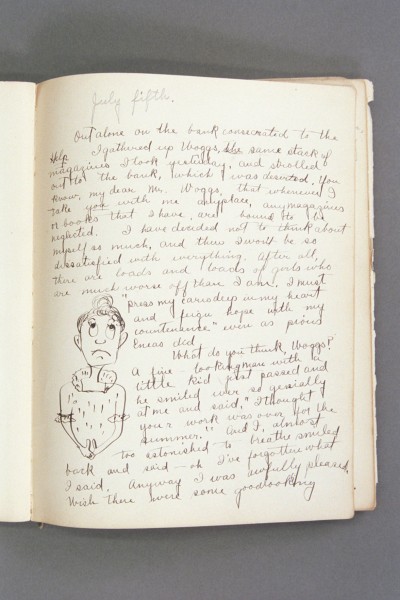 July fifth.
Out alone on the bank consecrated to the
Help I gathered up Woggs, the same stack of
magazines I took yesterday, and strolled
out to the bank, which was deserted. You
know, my dear Mr. Woggs, that whenever I
take you with me anyplace, any magazines
or books that I have, are bound to be
neglected. I have decided not to think about
myself so much, and then I won't be so
dissatisfied with everything. After all,
there are loads and loads of girls who
are much worse off than I am. I must
"press my cares deep in my heart
and feign hope with my
countenance" even as pious
Eneas did
What do you think, Woggs?
A fine-looking man with a
little kid just passed and
he smiled ever so genially
at me and said, "I thought
your work was over for the
summer." And I, almost
too astonished to breathe smiled
back and said — oh I've forgotten what
I said. Anyway I was awfully pleased.
Wish there were some goodlooking